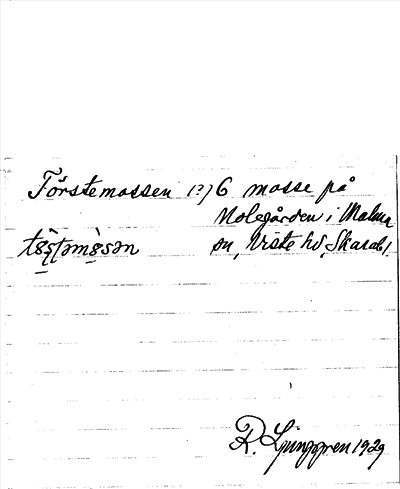 Förstemossen (?) 6 mosse på
Molegården i Malma
sn, Viste hd, Skarab l.
R. Ljunggren 1929